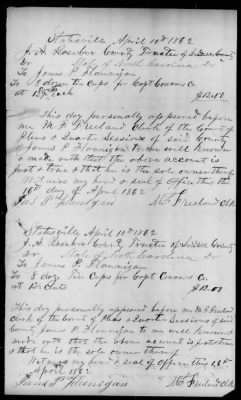 Statesville April 10th 1862
J. A. Rosebro County Trustee of Iredell County
Dr State of North Carolina Dr
To James P. Flannigan
To 8 dozen Tin Cups for Capt Cowans Co.
at 12½ each $12.00
This day personally appeared before
me M. Freeland Clerk of the County of
Pleas & Quarter Sessions of said County
James P Flannigan to me well known
& made oath that the above account is
just & true & that he is the sole owner thereof
Witness my hand & seal of office this the
10th day of April 1862
Jas P Flanigan M. Freeland Clk
Statesville April 10 1862
J. A. Rosebro County Trustee of Iredell County
Dr State of North Carolina Dr
To James P. Flannigan
To 8 doz Tin Cups for Capt Cowans Co.
at 12½ Cents $12.00
This day personally appeared before me M. Freeland
Clerk of the Court of Pleas & Quarter Sessions of
County James P. Flannigan to me well known
made oath that the above amount is just & true
& that he is the sole owner thereof
Witness my hand & seal of office this 10th
April 1862
James P. Flanigan M. Freeland Clk